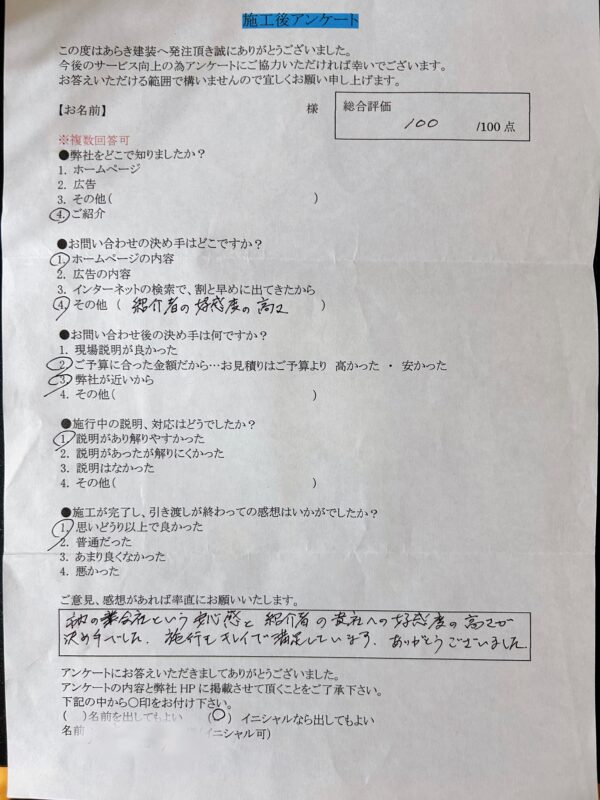 施工後アンケート
この度はあらき建装へ発注頂き誠にありがとうございました。
今後のサービス向上の為アンケートにご協力いただければ幸いでございます。
お答えいただける範囲で構いませんので宜しくお願い申し上げます。
【お名前】 様
総合評価
100 /100点
※複数回答可
●弊社をどこで知りましたか？
1. ホームページ
2. 広告
3. その他( )
4. ご紹介
●お問い合わせの決め手はどこですか？
1. ホームページの内容
2. 広告の内容
3. インターネットの検索で、割と早めに出てきたから
4. その他 ( 紹介者の好感度の高さ )
●お問い合わせ後の決め手は何ですか？
1. 現場説明が良かった
2. ご予算に合った金額だから…お見積りはご予算より 高かった ・ 安かった
3. 弊社が近いから
4. その他( )
●施行中の説明、対応はどうでしたか？
1. 説明があり解りやすかった
2. 説明があったが解りにくかった
3. 説明はなかった
4. その他( )
●施工が完了し、引き渡しが終わっての感想はいかがでしたか？
1. 思いどうり以上で良かった
2. 普通だった
3. あまり良くなかった
4. 悪かった
ご意見、感想があれば率直にお願いいたします。
の会社という安心感と紹介者の貴社への好感度の高さが
決め手でした。施行もキレイで満足しています。ありがとうございました。
アンケートにお答えいただきましてありがとうございました。
アンケートの内容と弊社HPに掲載させて頂くことをご了承下さい。
下記の中から○印をお付け下さい。
( )名前を出してもよい (○) イニシャルなら出してもよい
名前 (イニシャル可)